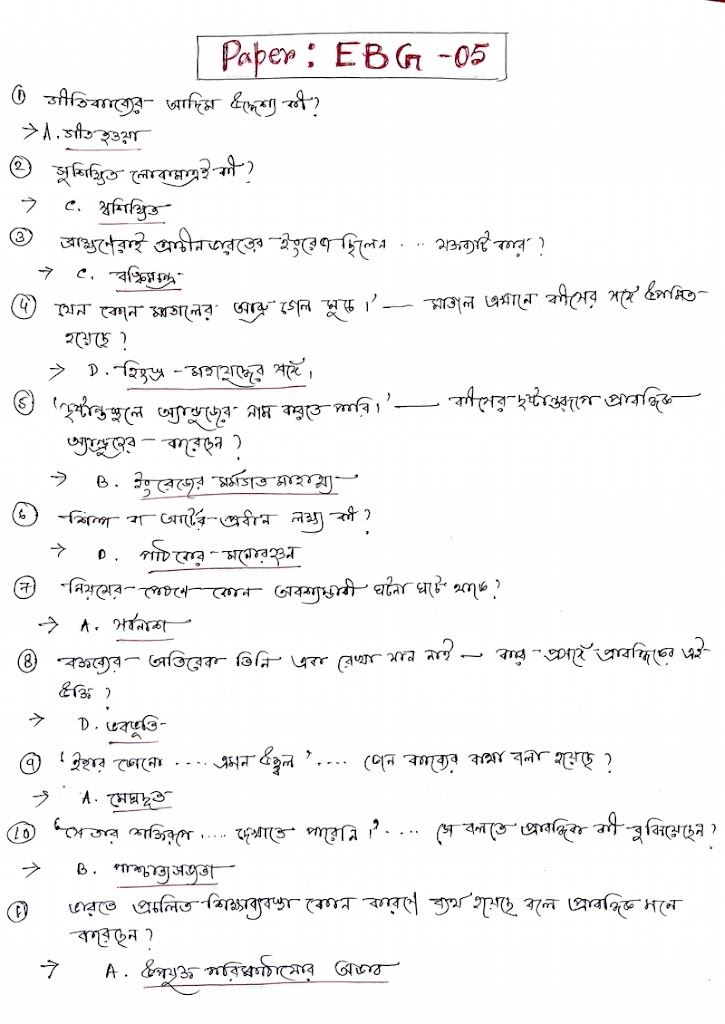 Paper : EBG - 05
① গীতিকাব্যের আদিম উদ্দেশ্য কী ?
→ A. গীত হওয়া
② সুশিক্ষিত লোকমাত্রই কী ?
→ C. স্বশিক্ষিত
③ ব্রাহ্মণেরাই প্রাচীন ভারতের ইংরেজ ছিলেন ... মন্তব্যটি কার ?
→ C. বঙ্কিমচন্দ্র
④ যেন কোন মাতালের আব্রু গেল ঘুচে ।' — মাতাল এখানে কীসের সঙ্গে উপমিত
হয়েছে ?
→ D. হিংস্র - মহাযুদ্ধের সঙ্গে ।
⑤ 'দৃষ্টান্তস্থলে অ্যান্ড্রুজের নাম করতে পারি ।' — কীসের দৃষ্টান্তরূপে প্রাবন্ধিক
অ্যান্ড্রুজের করেছেন ?
→ B. ইংরেজের মর্মগত মাহাত্ম্য
⑥ শিল্প বা আর্টের প্রধান লক্ষ্য কী ?
→ D. পাঠকের মনোরঞ্জন
⑦ নিয়মের পেছনে কোন অবশ্যম্ভাবী ঘটনা ঘটে থাকে ?
→ A. সর্বনাশ
⑧ বক্তব্যের অতিরেক তিনি এক রেখা যান নাই — কার প্রসঙ্গে প্রাবন্ধিকের এই
উক্তি ?
→ D. ভবভূতি
⑨ 'ইহার কোনো .... এমন উজ্জ্বল' .... কোন কাব্যের কথা বলা হয়েছে ?
→ A. মেঘদূত
⑩ 'সে তার শক্তিরূপ .... দেখাতে পারেনি ।' .... সে বলতে প্রাবন্ধিক কী বুঝিয়েছেন ?
→ B. পাশ্চাত্য সভ্যতা
⑪ ভারতে প্রচলিত শিক্ষাব্যবস্থা কোন কারণে ব্যর্থ হয়েছে বলে প্রাবন্ধিক মনে
করেছেন ?
→ A. উপযুক্ত পরিকাঠামোর অভাব